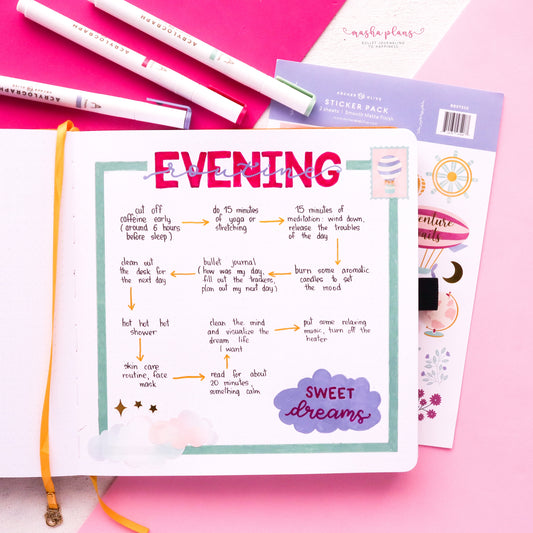 masha plans
BULLET JOURNALING
TO HAPPINESS
ACRYLOGRAPH
ACRYLOGRAPH
ARCHER & OLIVE
STICKER PACK
EVENING
routine
cut off
caffeine early
(around 6 hours
before sleep)
do 15 minutes
of yoga or
stretching
15 minutes of
meditation: wind down,
release the troubles
of the day
burn some aromatic
candles to set
the mood
bullet journal
(how was my day,
fill out the trackers,
plan out my next day)
clean out
the desk for
the next day
hot hot hot
shower
skin care
routine, face
mask
read for about
20 minutes,
something calm
clean the mind
and visualize the
dream life
I want
put some relaxing
music, turn off the
heater
SWEET
dreams